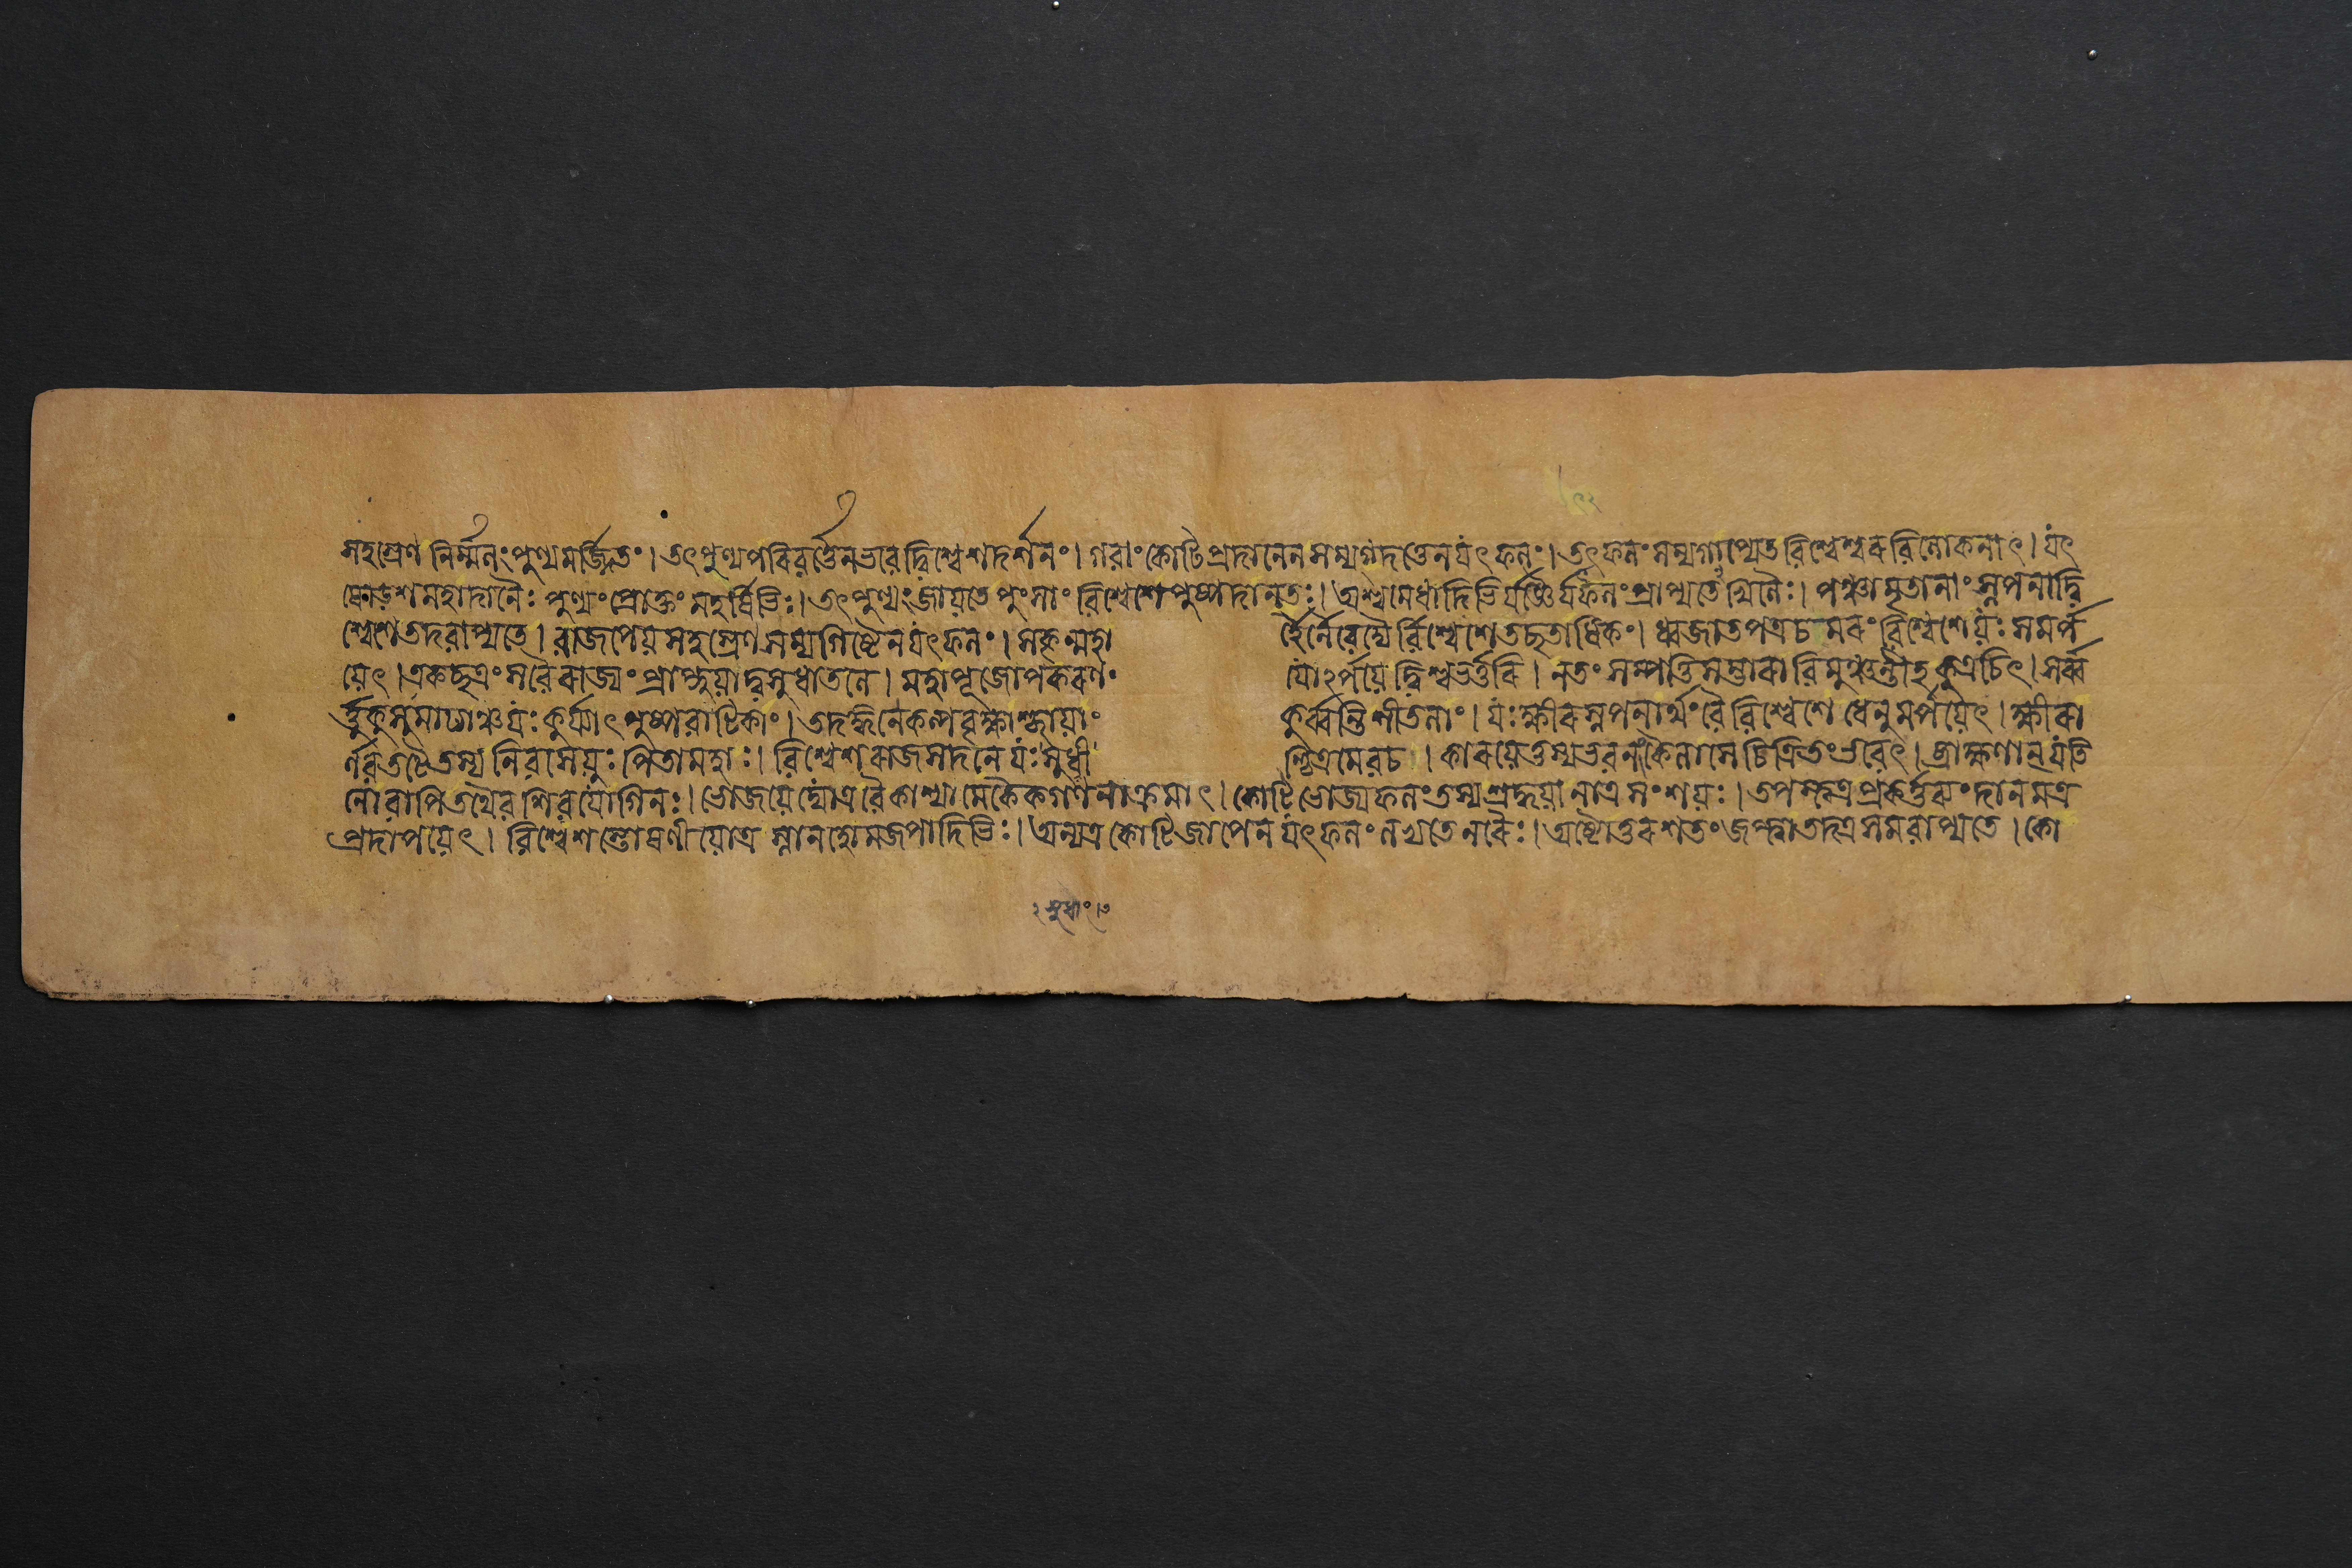 সহস্রেণ নির্ম্মলং পুণ্যমর্জ্জিতং। তৎপুণ্যপরিবর্ত্তেন ভবেদ্বিশ্বেশদর্শনং। গবাং কোটিপ্রদানেন সম্যগ্দত্তেন যৎফলং। তৎফলং সম্যগাপ্যেত বিশ্বেশ্বরবিলোকনাৎ। যৎ
ষোড়শমহাদানৈঃ পুণ্যং প্রোক্তং মহর্ষিভিঃ। তৎপুণ্যং জায়তে পুংসাং বিশ্বেশে পুষ্পদানতঃ। অশ্বমেধাদিভির্যজ্ঞৈর্যৎফলং প্রাপ্যতেখিলৈঃ। পঞ্চামৃতানাং স্নপনাদ্বি
শ্বেশে তদবাপ্যতে। বাজপেয়সহস্রেণ সম্যগিষ্টেন যৎফলং। সকৃন্মহা র্হৈর্নৈবেদ্যৈর্বিশ্বেশে তচ্ছতাধিকং। ধ্বজাতপত্রচমরং বিশ্বেশে যঃ সমর্প
য়েৎ। একচ্ছত্রং স বৈ রাজ্যং প্রাপ্নুয়াদ্বসুধাতলে। মহাপূজোপকরণং যোঽর্পয়েদ্বিশ্বভর্ত্তরি। ন তং সম্পত্তিসম্ভারা বিমুঞ্চন্তীহ কুত্রচিৎ। সর্ব্ব
র্ত্তুকুসুমাঢ্যাঞ্চ যঃ কুর্য্যাৎ পুষ্পবাটিকাং। তদঙ্গনে কল্পবৃক্ষাশ্ছায়াং কুর্ব্বন্তি শীতলাং। যঃ ক্ষীরস্নপনার্থং বৈ বিশ্বেশে ধেনুমর্পয়েৎ। ক্ষীরা
র্ণবতটে তস্য নিবসেয়ুঃ পিতামহাঃ। বিশ্বেশরাজসদনে যঃ সুধাং চিত্রমেব চ। কারয়েত্তস্য ভবনং কৈলাসে চিত্রিতং ভবেৎ। ব্রাহ্মণান্ যতি
নো বাপি তথৈব শিবযোগিনঃ। ভোজয়েদ্যোত্র বৈ কাশ্যামেকৈকগণনাক্রমাৎ। কোটিভোজ্যফলং তস্য শ্রদ্ধয়া নাত্র সংশয়ঃ। তপস্ত্বত্র প্রকর্ত্তব্যং দানমত্র
প্রদাপয়েৎ। বিশ্বেশস্তোষণীয়োত্র স্নানহোমজপাদিভিঃ। অন্যত্র কোটিজাপেন যৎফলং লভ্যতে নরৈঃ। অষ্টোত্তরশতং জপ্ত্বা তদত্র সমবাপ্যতে। কো
২ সুধাং।